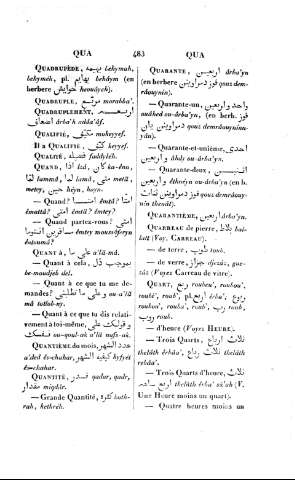 QUA 483 QUA
QUADRUPÈDE, بهيمه behymah,
behyméh, pl. بهايم behâym (en
berbere حوايش heouâych).
QUADRUPLE, مربّع morabba'.
QUADRUPLEMENT,
اضعاف arba'h adda'âf.
QUALIFIÉ, مكيّف mukeyyef.
Il a QUALIFIÉ, كيّف keyyef.
QUALITÉ, فضيله faddyléh.
QUAND, اذا izd, كان ka-énn,
لمّا lammâ, لما lamâ, متى metä,
metey, حين héyn, heyn.
— Quand? امتى émtä?
émattâ? امتى émti? émtey?
— Quand partez-vous? امتى
émtey mousâferyn
éntoumâ?
QUANT à, على ما a'lä-mâ.
— Quant à cela, بموجب ذل
be-maudjeb del.
— Quant à ce que tu me de-
mandes? وعلى ما تطلبني ou a'lä
mâ totlob-ny.
— Quant à ce que tu dis relati-
vement à toi-même, وقولك على
نفسك ou-qoul-ak a'lä nafs-ak.
QUANTIÈME du mois, عدد الشهر
a'ded és-chahar, كيفيه الشهر kyfyét
és-chahar.
QUANTITÉ, قدر qadar, qadr,
مقدار miqdâr.
— Grande Quantité, كثره koth-
rah, kethréh.
QUARANTE, اربعين arba'yn
(en berbere قوز دمراوين qouz dem-
rdouynin).
— Quarante-un, واحد و اربعين
ouâhed ou-arba'yn, (en berb. قوز
qouz demrdouynin
yân).
— Quarante-et-unième, احدى
و اربعين âhdy ou-arba'yn.
— Quarante-deux,
و اربعين ethneyn ou-arba'yn (en b.
qouz demrdouy-
nin thenât).
QUARANTIÈME, اربعين arba'yn.
QUARREAU de pierre, بلاط ba-
latt (Voy. CARREAU).
— de terre, طوب toub.
— de verre, جزاز djezâz, gue-
zâz (Voyez Carreau de vitre).
QUART, ربع roubou', roubou,
roubè', roub', pl. ارباع arbâ', ربوع
roubou', rouba', roub', ربو roub,
روب roub.
— d'heure (Voyez HEURE).
— Trois Quarts, ثلاث ارباع
thelâth érbâa', ثلاث رباع thelâth
rebâa'.
— Trois Quarts d'heure, ثلاث
ارباع ساعه thelâth érba' sâ'ah (V.
Une Heure moins un quart).
— Quatre heures moins un